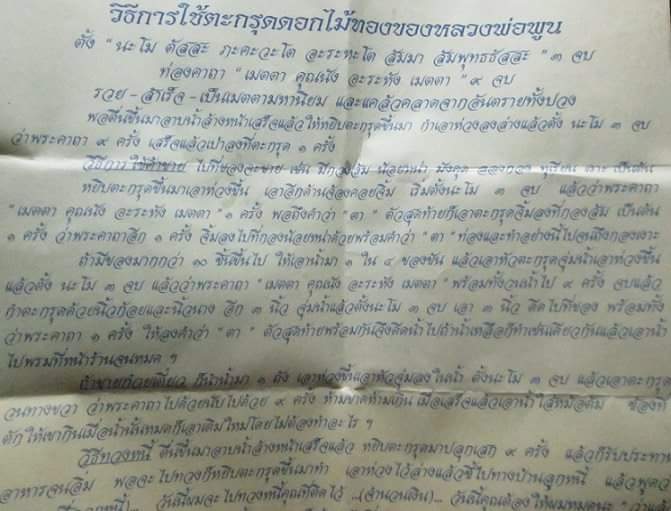 วิธีการใช้ตะกรุดดอกไม้ทองของหลวงพ่อพูน
ตั้ง "นะโม ตัสสะ ภะคะวะโต อะระหะโต สัมมา สัมพุทธธัสสะ" ๓ จบ
ท่องคาถา "เมตตา คุณนัง อะระหัง เมตตา" ๙ จบ
รวย - สำเร็จ - เป็นเมตตามหานิยม และแคล้วคลาดจากอันตรายทั้งปวง
พอตื่นขึ้นมาอาบน้ำล้างหน้าเสร็จแล้วให้หยิบตะกรุดขึ้นมา กำเอาห่วงลงล่างแล้วตั้ง นะโม ๓ จบ
ว่าพระคาถา ๙ ครั้ง เสร็จแล้วเป่าลงที่ตะกรุด ๑ ครั้ง
วิธีการใช้ค้าขาย ไปที่ของจะขาย เช่น มีกองส้ม น้อยหน่า มังคุด ทุเรียน เงาะ เป็นต้น
หยิบตะกรุดขึ้นมาเอาห่วงขึ้น เอาอีกด้านจ้องคอยจิ้ม เริ่มตั้งนะโม ๓ จบ แล้วว่าพระคาถา
"เมตตา คุณนัง อะระหัง เมตตา" ๑ ครั้ง พอถึงคำว่า "ตา" ตัวสุดท้ายก็เอาตะกรุดจิ้มลงที่กองส้ม เป็นต้น
๑ ครั้ง ว่าพระคาถาอีก ๑ ครั้ง จิ้มลงไปที่กองน้อยหน่าด้วยพร้อมคำว่า "ตา" ท่องและทำอย่างนี้ไปจนถึงกองเงาะ
ถ้ามีของมากกว่า ๑๐ ชิ้นขึ้นไป ให้เอาน้ำมา ๑ ใน ๔ ของขัน แล้วเอาหัวตะกรุดจุ่มน้ำเอาห่วงขึ้น
แล้วตั้ง นะโม ๓ จบ แล้วว่าพระคาถา "เมตตา คุณนัง อะระหัง เมตตา" พร้อมทั้งวนน้ำไป ๙ ครั้ง จบแล้ว
กำตะกรุดด้วยนิ้วก้อยและนิ้วนาง อีก ๓ นิ้ว จุ่มน้ำแล้วตั้งนะโม ๓ จบ เอา ๓ นิ้ว ดีดไปที่ของ พร้อมทั้ง
ว่าพระคาถา ๑ ครั้ง ให้ลงคำว่า "ตา" ตัวสุดท้ายพร้อมกันจึงดีดน้ำไปถ้าน้ำเหลือก็ทำเช่นเดียวกันแล้วเอาน้ำ
ไปพรมที่หน้าร้านจนหมด ฯ
ถ้าขายก๋วยเตี๋ยว ก็นำน้ำมา ๑ ถัง เอาห่วงขึ้นเอาหัวจุ่มลงในน้ำ ตั้งนะโม ๓ จบ แล้วเอาตะกรุด
วนทางขวา ว่าพระคาถาไปด้วยนับไปด้วย ๙ ครั้ง ห้ามขาดห้ามเกิน เมื่อเสร็จแล้วเอาน้ำใส่หม้อต้ม
ตักให้เขากินเมื่อน้ำนั้นหมดก็เอาเติมใหม่โดยไม่ต้องทำอะไร ฯ
วิธีทวงหนี้ ตื่นขึ้นมาอาบน้ำล้างหน้าเสร็จแล้ว หยิบตะกรุดมาปลุกเสก ๙ ครั้ง แล้วก็รับประทาน
อาหารจนอิ่ม พอจะไปทวงก็หยิบตะกรุดขึ้นมาทำ เอาห่วงไว้ล่างแล้วชี้ไปทางบ้านลูกหนี้ แล้วพูดว่า
วันนี้ผมจะไปทวงหนี้คุณที่ติดไว้ ...(จำนวนเงิน)... วันนี้คุณต้องให้ผมหมดนะ"